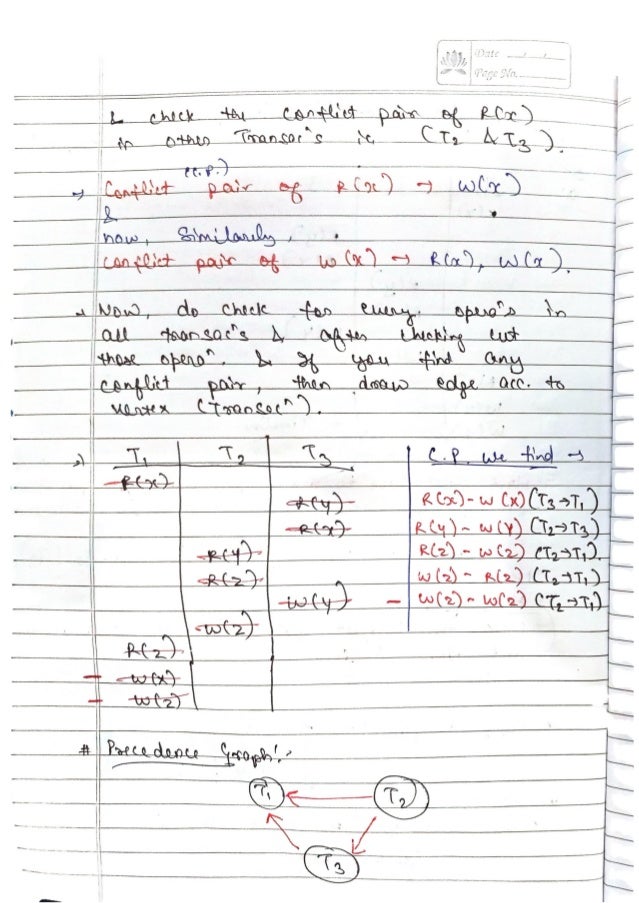 Date
Page No.
& check the conflict pair of R(x)
in other Transacⁿs ie (T2 & T3).
(C.P.)
→ Conflict pair of R(x) → W(x)
&
now, Similarly,
Conflict pair of W(x) → R(x), W(x).
→ Now, do check for every operaⁿs in
all transacⁿs & after checking cut
those operaⁿ. & If you find any
conflict pair, then draw edge acc. to
vertex (Transacⁿ).
→) T1 T2 T3 C.P. we find →
R(x)
R(y) R(x) - W(x) (T3→T1)
R(x) R(y) - W(y) (T2→T3)
R(y) R(z) - W(z) (T2→T1).
R(z) W(z) - R(z) (T2→T1)
W(y) - W(z) - W(z) (T2→T1)
W(z)
R(z)
W(x)
W(z)
# Precedence Graph!-
T1 T2
T3